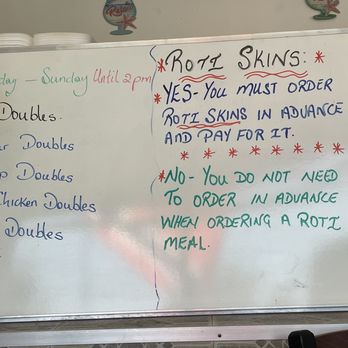 day - Sunday Until 2pm
Doubles.
Doubles
Doubles
Chicken Doubles
Doubles
* ROTI SKINS: *
* YES - YOU MUST ORDER
ROTI SKINS IN ADVANCE
AND PAY FOR IT.
* * * * * * * *
* NO - YOU DO NOT NEED
TO ORDER IN ADVANCE
WHEN ORDERING A ROTI
MEAL.